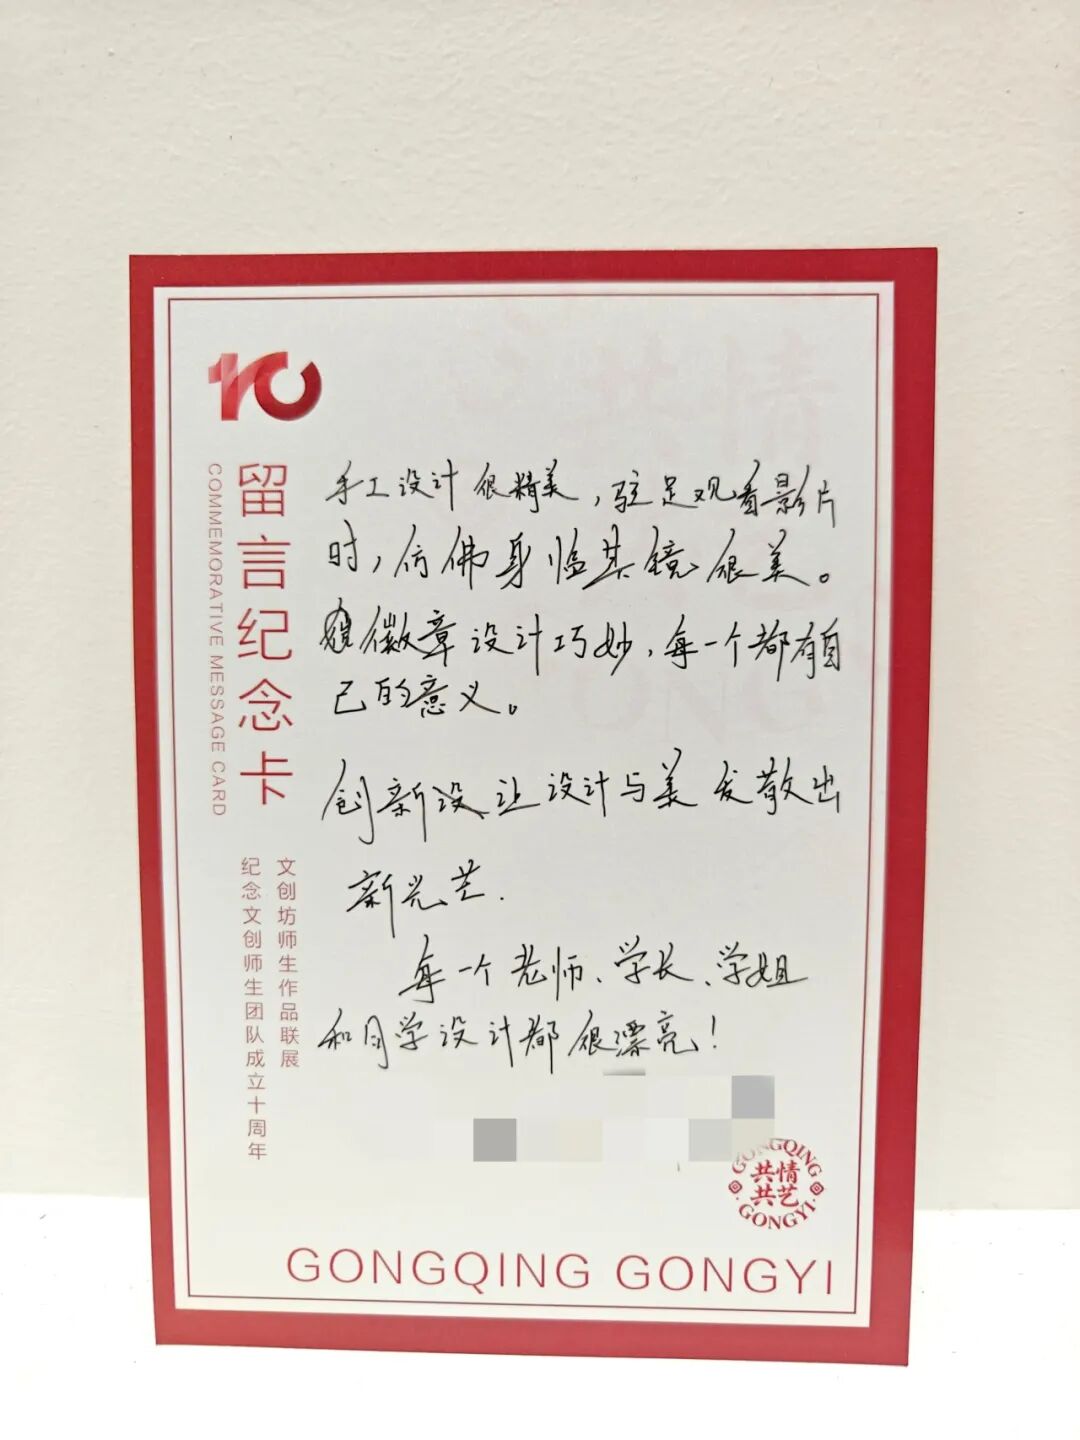 10
留言纪念卡
COMMEMORATIVE MESSAGE CARD
文创坊师生作品联展
纪念文创师生团队成立十周年
手工设计很精美，驻足观看影片
时，仿佛身临其镜很美。
徽章设计巧妙，每一个都有自
己的意义。
创新设让设计与美发散出
新光芒.
每一个老师、学长、学姐
和同学设计都很漂亮！
GONGQING
共情
共艺
GONGYI
GONGQING GONGYI